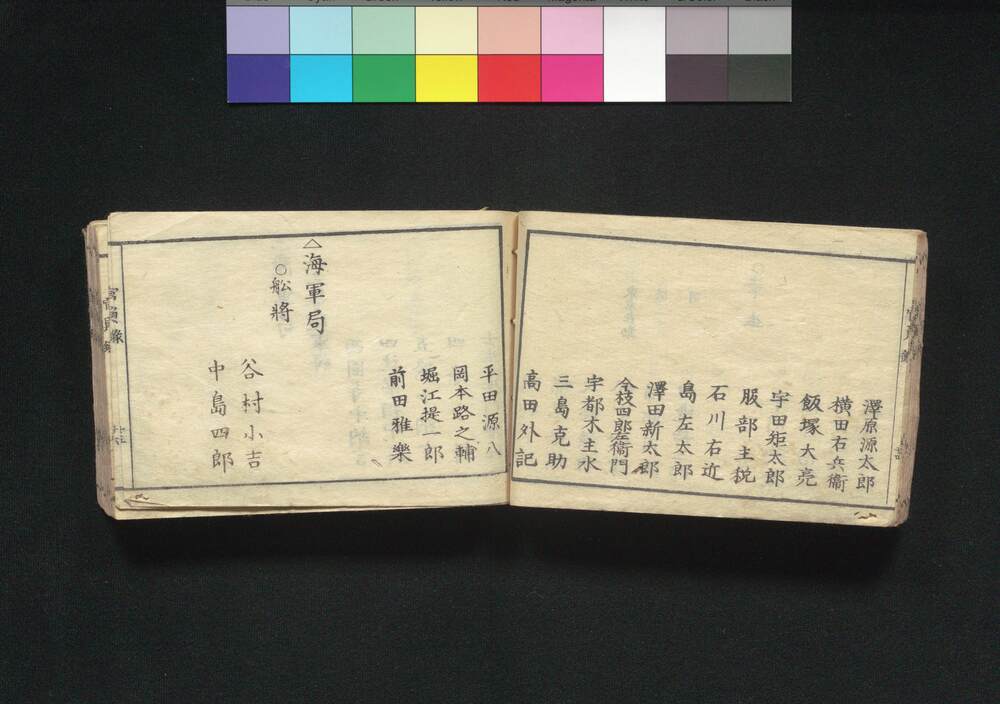 澤原源太郎
横田右兵衞
飯塚大亮
宇田矩太郎
服部主税
石川右近
島左太郎
澤田新太郎
今枝四郎左衞門
宇都木主水
三島克助
高田外記
平田源八
岡本路之輔
堀江提一郎
前田雅樂
△海軍局
○舩將
谷村小吉
中島四郎